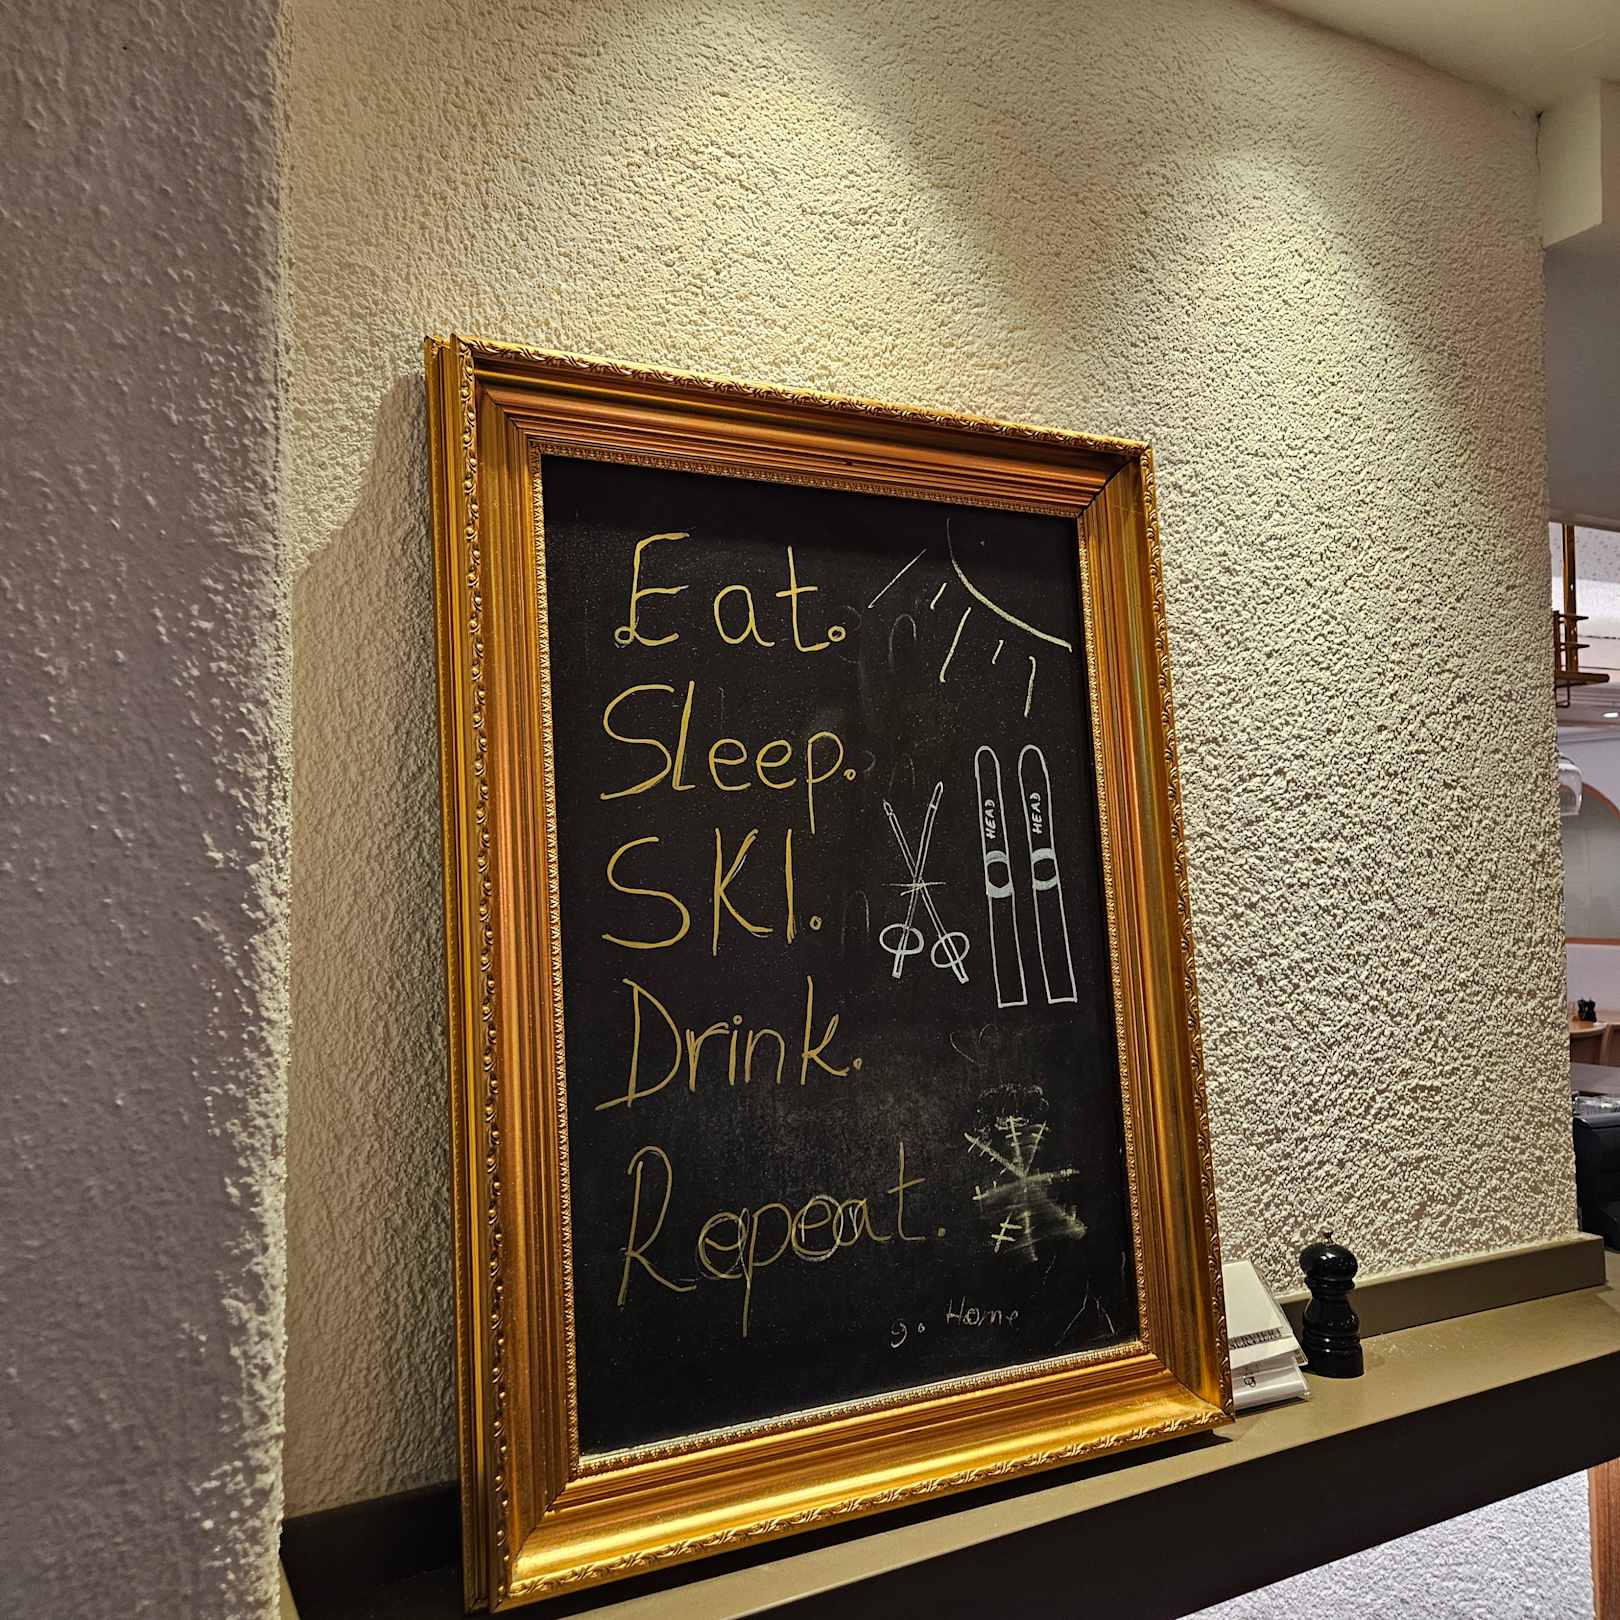 Eat.
Sleep.
SKI.
HEAD
HEAD
Drink.
Repeat.
go Home